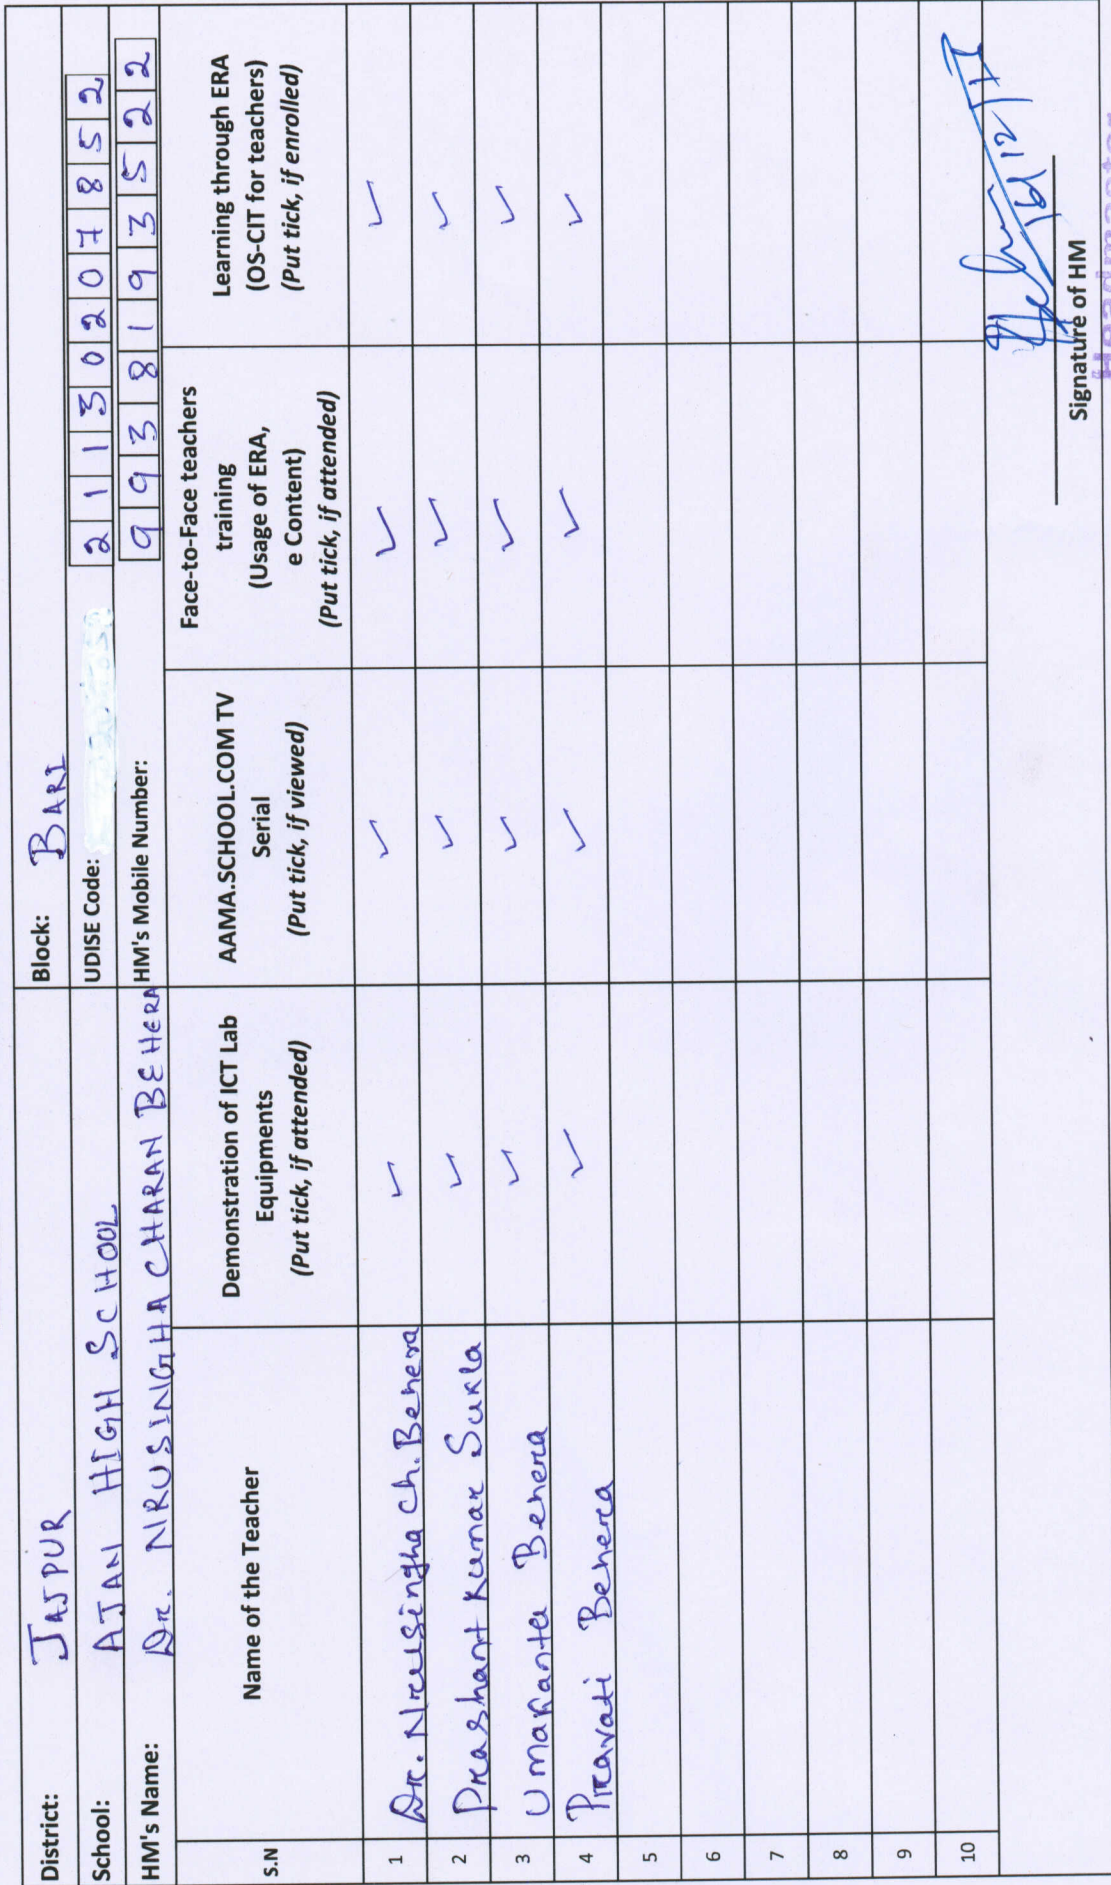 District: JAJPUR Block: BARI
School: AJAN HIGH SCHOOL UDISE Code: 21130207852
HM's Name: Dr. NRUSINGHA CHARAN BEHERA HM's Mobile Number: 9938193522
S.N Name of the Teacher Demonstration of ICT Lab Equipments (Put tick, if attended) AAMA.SCHOOL.COM TV Serial (Put tick, if viewed) Face-to-Face teachers training (Usage of ERA, e Content) (Put tick, if attended) Learning through ERA (OS-CIT for teachers) (Put tick, if enrolled)
1 Dr. Nrusingha Ch. Behera ✓ ✓ ✓ ✓
2 Prashant Kumar Sukla ✓ ✓ ✓ ✓
3 Umakanta Behera ✓ ✓ ✓ ✓
4 Pravati Behera ✓ ✓ ✓ ✓
5
6
7
8
9
10
Signature of HM
Headmaster